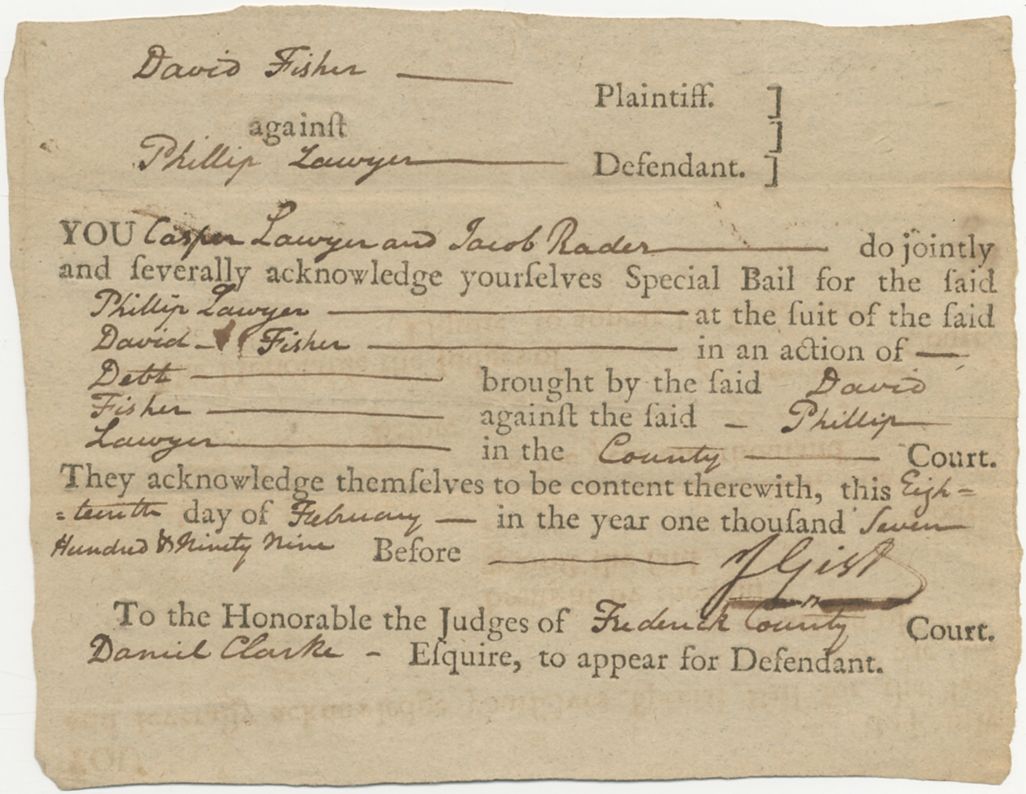 David Fisher —
Plaintiff. ]
againſt ]
Phillip Lawyer — Defendant. ]
YOU Casper Lawyer and Jacob Rader — do jointly
and ſeverally acknowledge yourſelves Special Bail for the ſaid
Phillip Lawyer — at the ſuit of the ſaid
David - Fisher — in an action of —
Debt — brought by the ſaid David
Fisher — againſt the ſaid - Phillip
Lawyer — in the County — Court.
They acknowledge themſelves to be content therewith, this Eigh=
=teenth day of February — in the year one thouſand Seven
Hundred & Ninety Nine Before — J Gist
To the Honorable the Judges of Frederick County Court.
Daniel Clarke - Eſquire, to appear for Defendant.